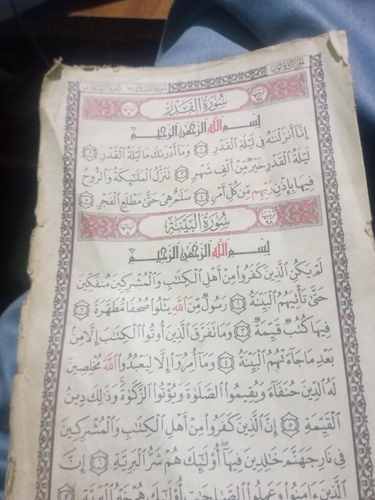 الجزء الثلاثون
سورة القدر
بسم الله الرحمن الرحيم
إنا أنزلناه في ليلة القدر ١ وما أدراك ما ليلة القدر ٢
ليلة القدر خير من ألف شهر ٣ تنزل الملائكة والروح
فيها بإذن ربهم من كل أمر ٤ سلام هي حتى مطلع الفجر ٥
سورة البينة
بسم الله الرحمن الرحيم
لم يكن الذين كفروا من أهل الكتاب والمشركين منفكين
حتى تأتيهم البينة ١ رسول من الله يتلوا صحفا مطهرة ٢
فيها كتب قيمة ٣ وما تفرق الذين أوتوا الكتاب إلا من
بعد ما جاءتهم البينة ٤ وما أمروا إلا ليعبدوا الله مخلصين
له الدين حنفاء ويقيموا الصلوة ويؤتوا الزكوة وذلك دين
القيمة ٥ إن الذين كفروا من أهل الكتاب والمشركين
في نار جهنم خالدين فيها أولئك هم شر البرية ٦ إن
الذين آمنوا وعملوا الصالحات أولئك هم خير البرية ٧